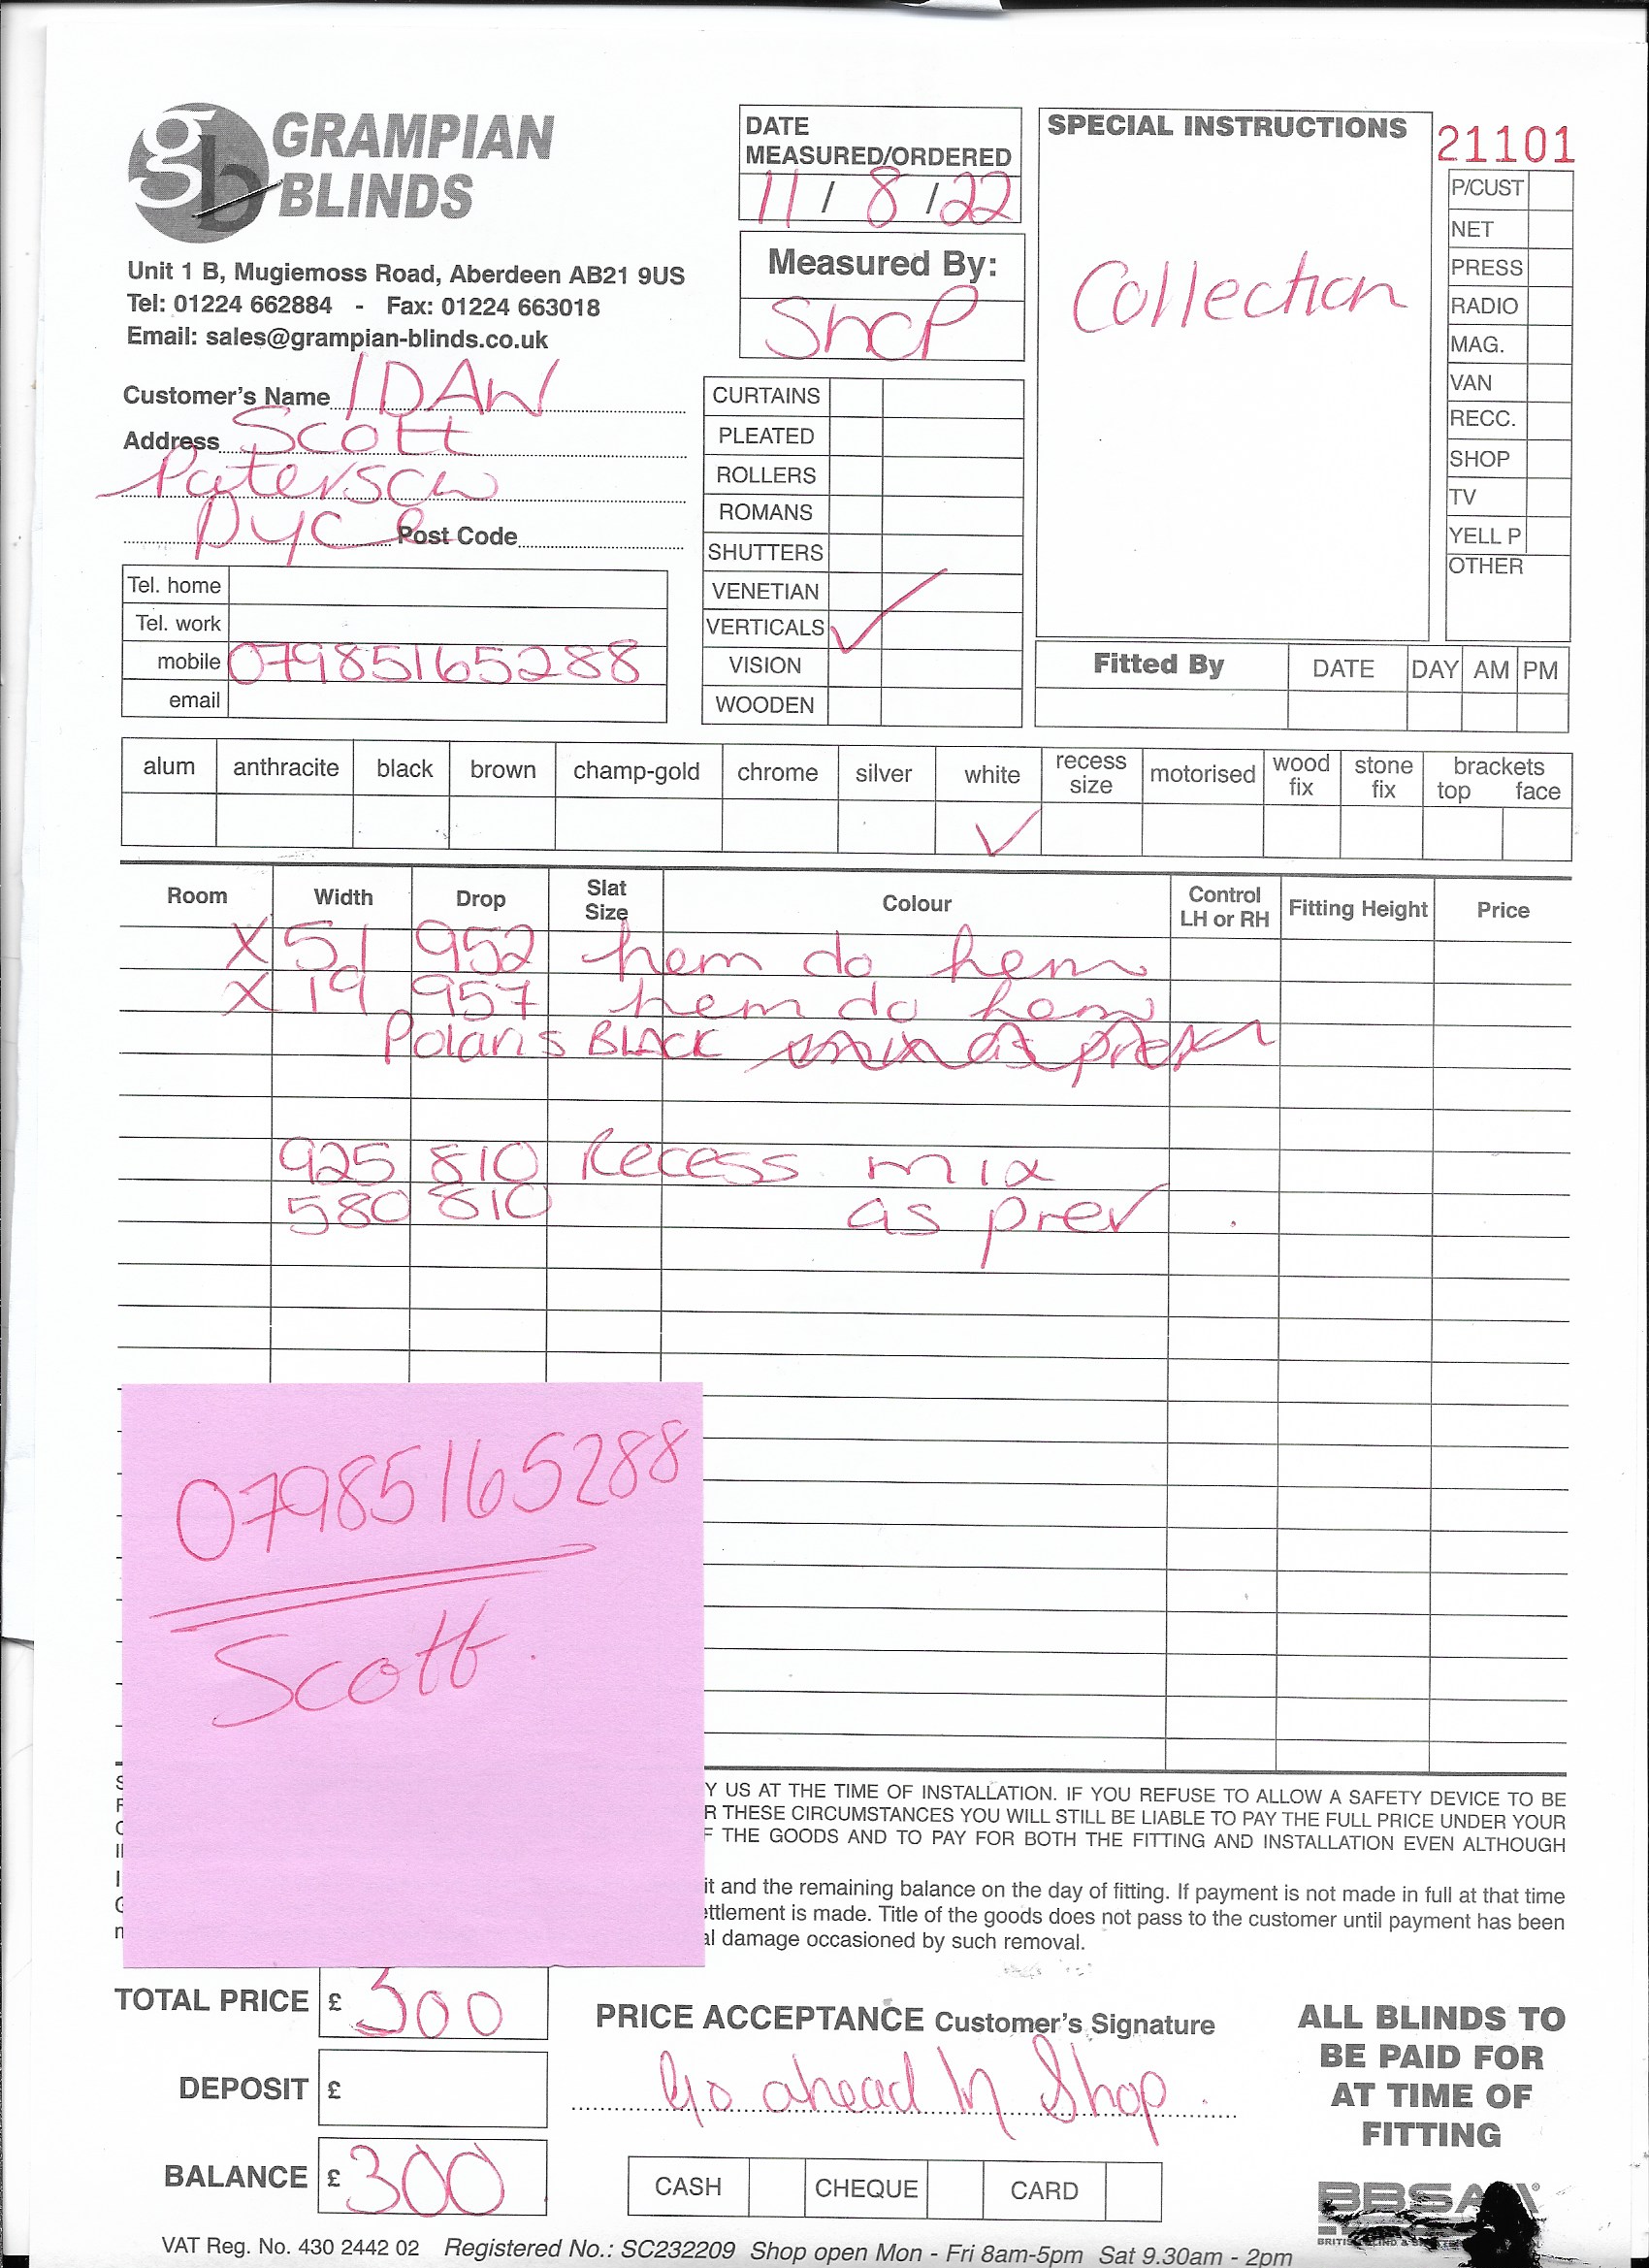 GRAMPIAN
BLINDS
Unit 1 B, Mugiemoss Road, Aberdeen AB21 9US
Tel: 01224 662884 - Fax: 01224 663018
Email: sales@grampian-blinds.co.uk
DATE
MEASURED/ORDERED
11 / 8 / 22
Measured By:
Shop
SPECIAL INSTRUCTIONS
Collection
21101
P/CUST
NET
PRESS
RADIO
MAG.
VAN
RECC.
SHOP
TV
YELL P
OTHER
Customer's Name IDAW
Address Scott
Paterson
Dyce Post Code
Tel. home
Tel. work
mobile 07985165288
email
CURTAINS
PLEATED
ROLLERS
ROMANS
SHUTTERS
VENETIAN
VERTICALS ✓
VISION
WOODEN
Fitted By DATE DAY AM PM
alum anthracite black brown champ-gold chrome silver white recess size motorised wood fix stone fix brackets top face
✓
Room Width Drop Slat Size Colour Control LH or RH Fitting Height Price
X 51 952 hem do hem
X 19 957 hem do hem
Polaris BLACK
925 810 Recess mix
580 810 as prev
07985165288
Scott.
Y US AT THE TIME OF INSTALLATION. IF YOU REFUSE TO ALLOW A SAFETY DEVICE TO BE
R THESE CIRCUMSTANCES YOU WILL STILL BE LIABLE TO PAY THE FULL PRICE UNDER YOUR
F THE GOODS AND TO PAY FOR BOTH THE FITTING AND INSTALLATION EVEN ALTHOUGH
it and the remaining balance on the day of fitting. If payment is not made in full at that time
ttlement is made. Title of the goods does not pass to the customer until payment has been
al damage occasioned by such removal.
TOTAL PRICE £ 300
DEPOSIT £
BALANCE £ 300
PRICE ACCEPTANCE Customer's Signature
Go ahead In Shop
CASH CHEQUE CARD
ALL BLINDS TO
BE PAID FOR
AT TIME OF
FITTING
BBSA
VAT Reg. No. 430 2442 02 Registered No.: SC232209 Shop open Mon - Fri 8am-5pm Sat 9.30am - 2pm